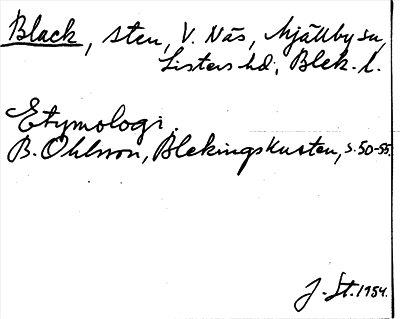 Black, sten, V. Näs, Mjällby sn,
Listers hd, Blek. l.
Etymologi.
B. Ohlsson, Blekingskusten, s. 50-55.
J. St. 1954.